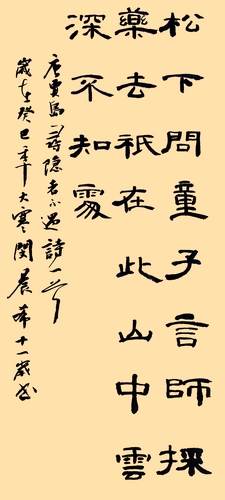 松下問童子言師採
藥去祇在此山中雲
深不知處
唐賈島尋隱者不遇詩一首
歲在癸巳年大寒閔晨希十一歲書